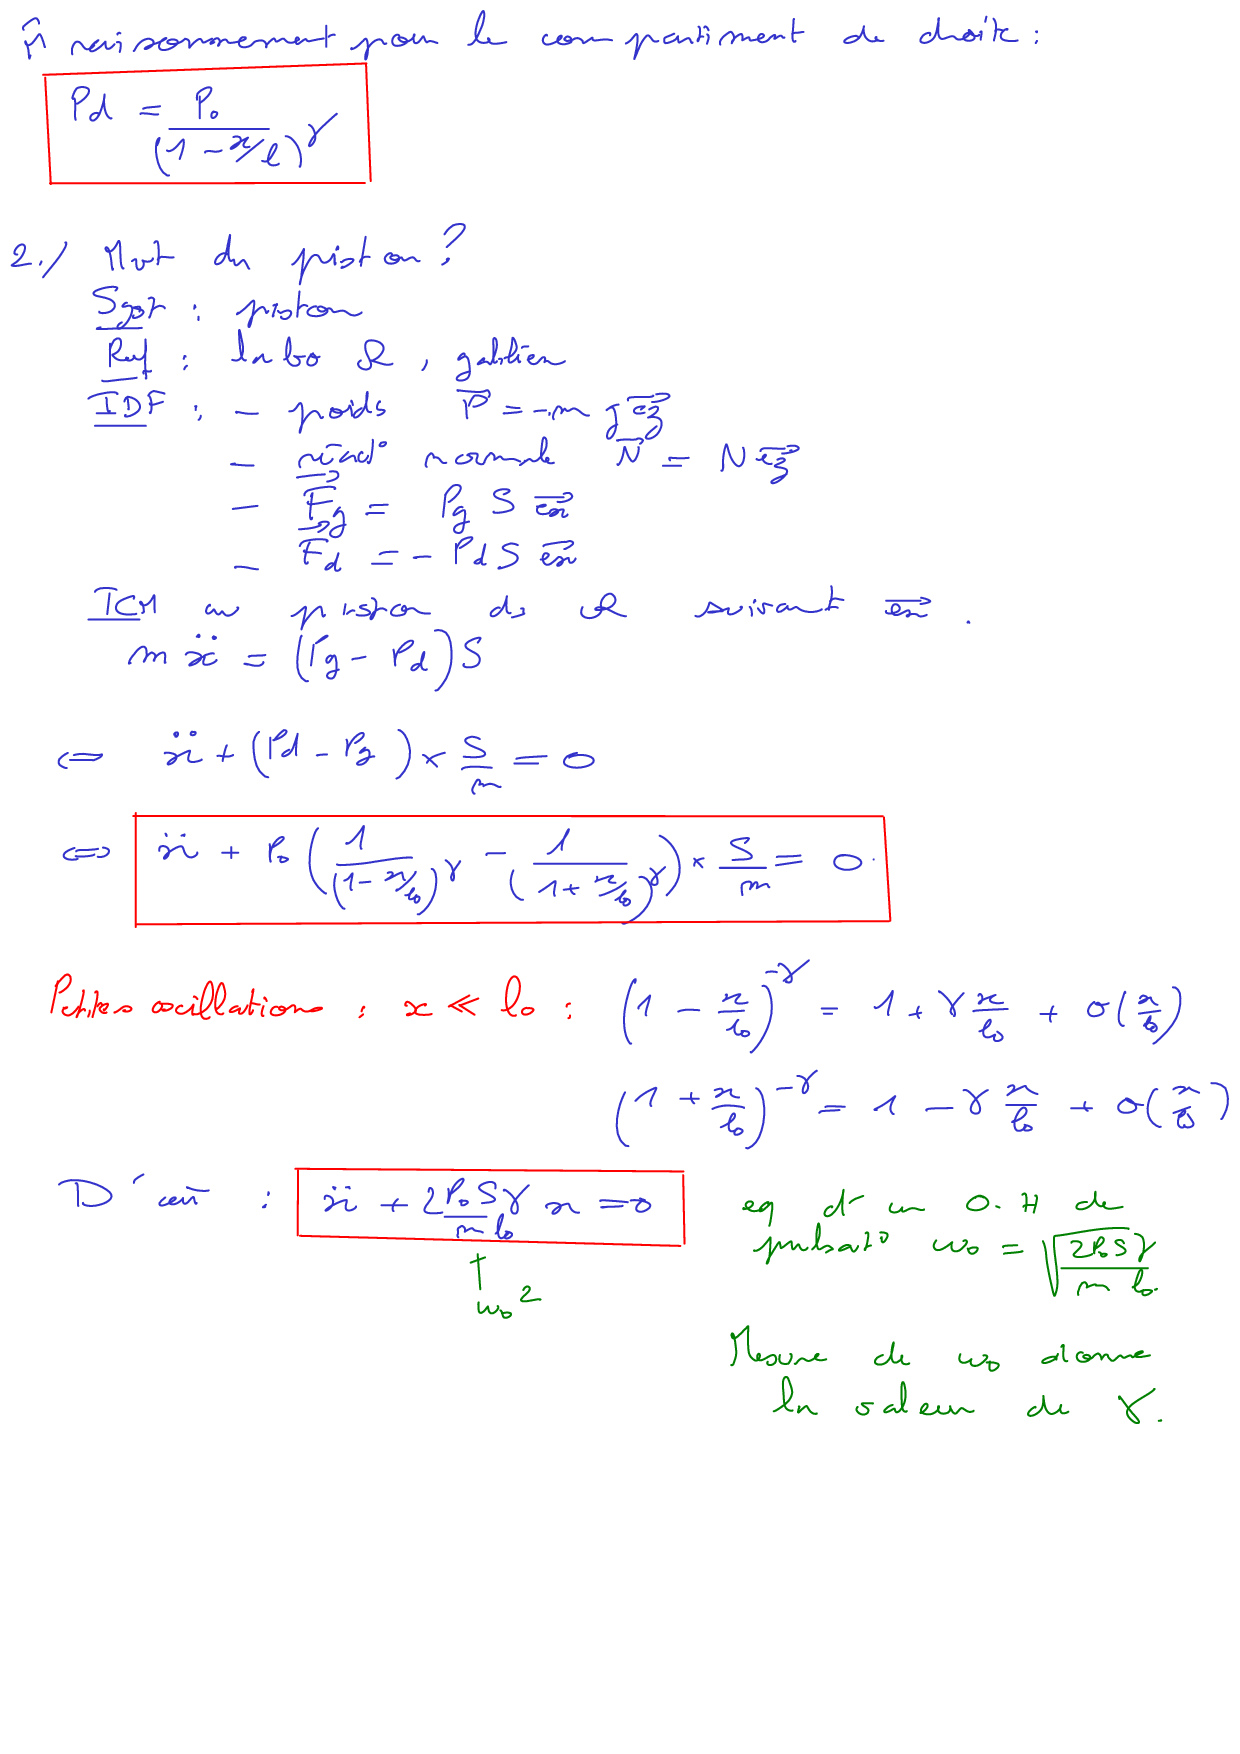 m̂ raisonnement pour le compartiment de droite :
Pd = P₀ / (1 - x/l)^γ
2./ Mvt du piston ?
Syst : piston
Ref : labo R, galiléen
IDF : - poids P⃗ = - m g e⃗z
- réact° normale N⃗ = N e⃗z
- F⃗g = Pg S e⃗x
- F⃗d = - Pd S e⃗x
TCM au piston ds R suivant e⃗x.
m ẍ = (Pg - Pd) S
⇔ ẍ + (Pd - Pg) × S/m = 0
⇔ ẍ + P₀ ( 1/(1 - x/l₀)^γ - 1/(1 + x/l₀)^γ ) × S/m = 0.
Petites oscillations : x ≪ l₀ : (1 - x/l₀)^-γ = 1 + γ x/l₀ + o(x/l₀)
(1 + x/l₀)^-γ = 1 - γ x/l₀ + o(x/l₀)
D'où : ẍ + 2 P₀ S γ / (m l₀) x = 0
↑ ω₀²
eq d'un O.H de
pulsat° ω₀ = √(2 P₀ S γ / (m l₀))
Mesure de ω₀ donne
la valeur de γ.